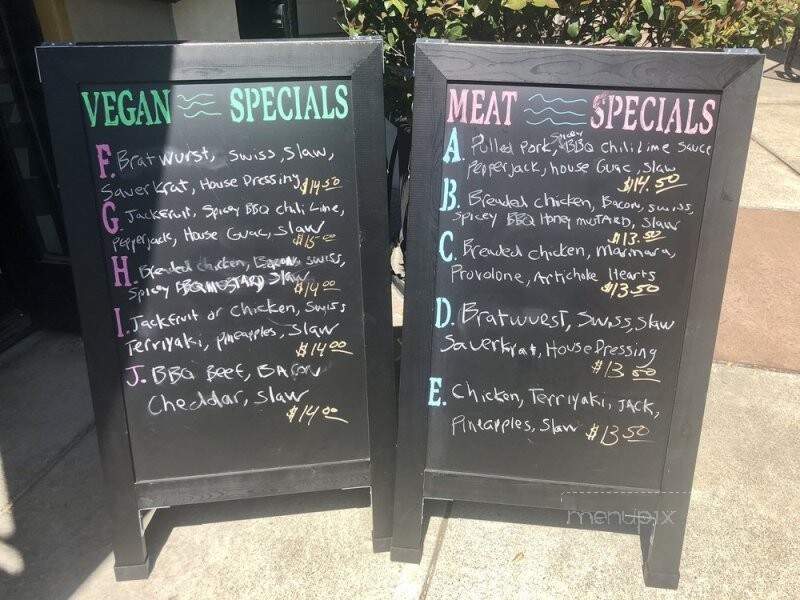 VEGAN SPECIALS
F. Bratwurst, Swiss, Slaw,
Sauerkrat, House Dressing $14.50
G. Jackfruit, Spicy BBQ chili Lime,
Pepperjack, House Guac, Slaw
$15.00
H. Breaded chicken, Bacon, Swiss,
Spicy MUSTARD Slaw $14.00
I. Jackfruit or Chicken, Swiss
Terriyaki, Pineapples, Slaw
$14.00
J. BBQ Beef, BACON
Cheddar, Slaw
$14.00
MEAT SPECIALS
A. Pulled Pork, Spicy BBQ Chili Lime Sauce
Pepperjack, house Guac, Slaw
$14.50
B. Breaded Chicken, Bacon, Swiss,
Spicey BBQ Honey MUSTARD, Slaw
$13.50
C. Breaded chicken, Marinara,
Provolone, Artichoke Hearts
$13.50
D. Bratwurst, Swiss, Slaw
Sauerkrat, House Dressing
$13.50
E. Chicken, Terriyaki, JACK,
Pineapples, Slaw $13.50
menupix